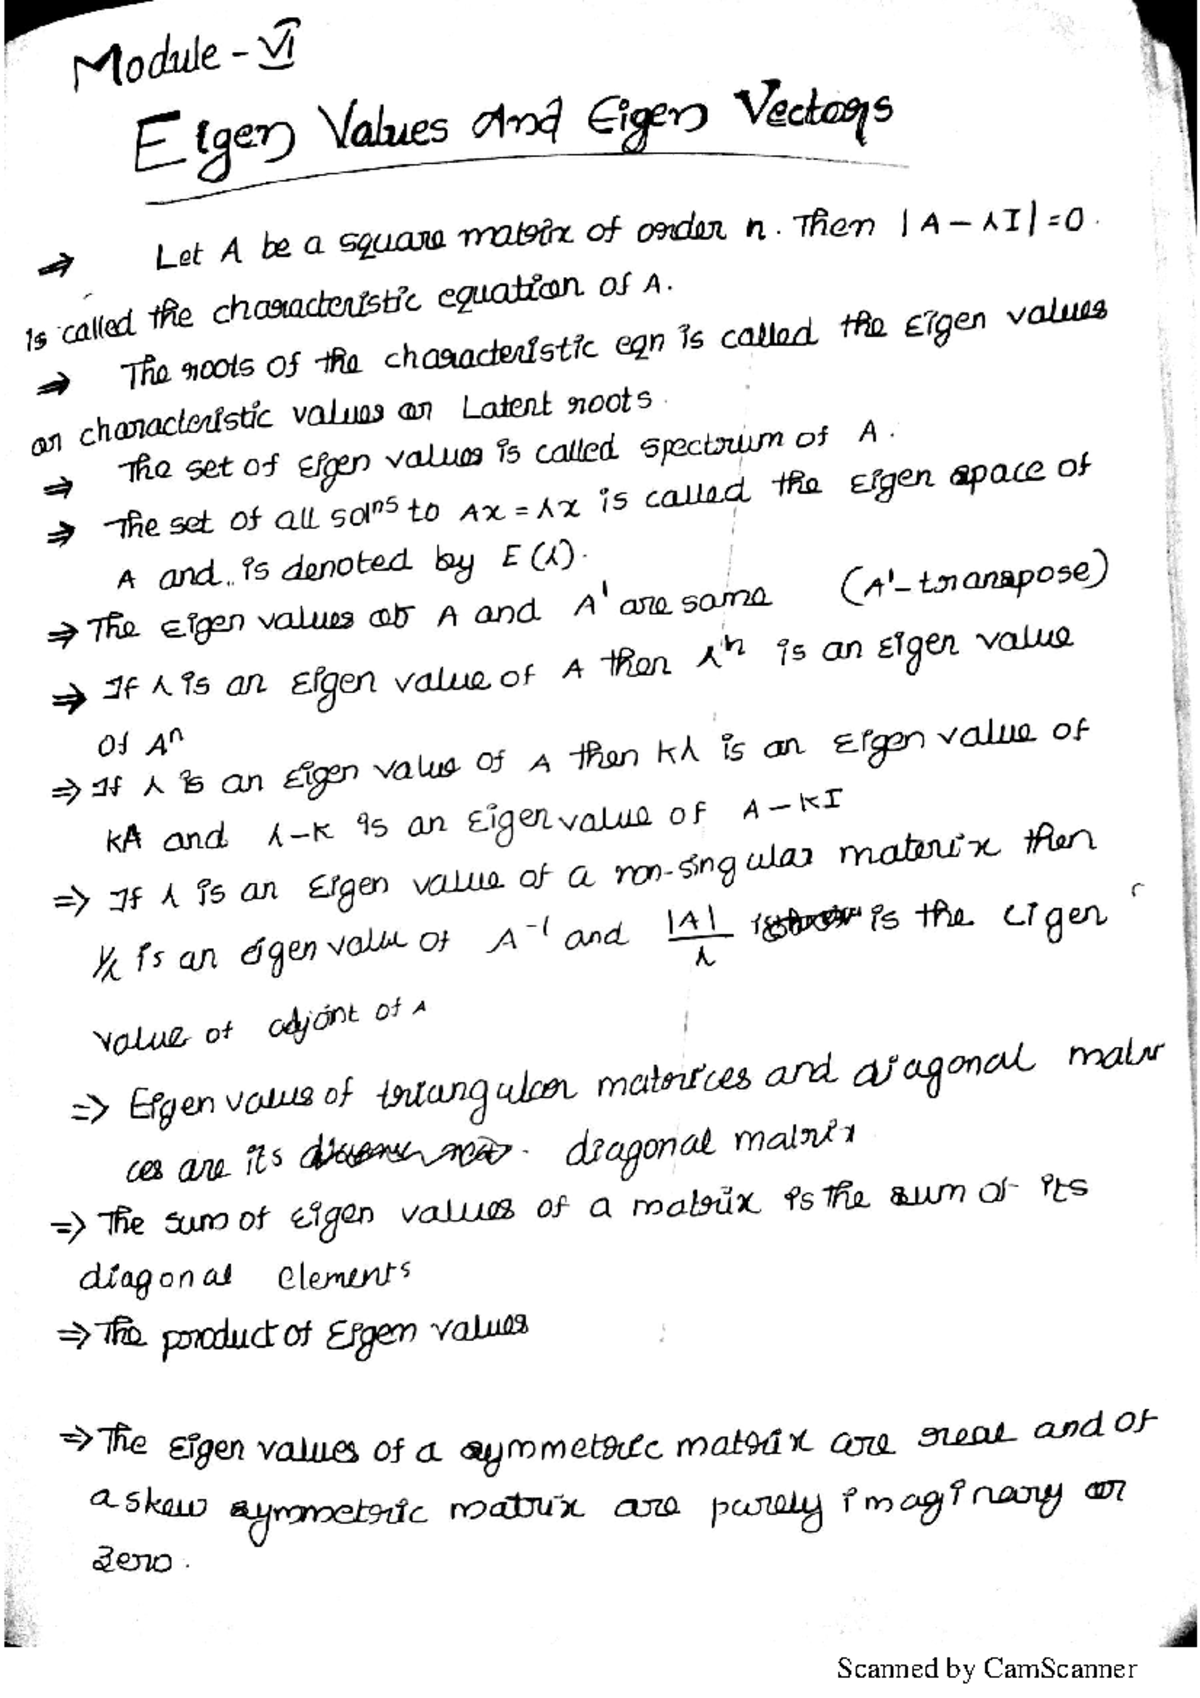 Module - VI
Eigen Values And Eigen Vectors
⇒ Let A be a square matrix of order n. Then |A - λI| = 0.
is called the characteristic equation of A.
⇒ The roots of the characteristic eqn is called the Eigen values
or characteristic values or Latent roots.
⇒ The set of Eigen values is called spectrum of A.
⇒ The set of all solns to Ax = λx is called the Eigen space of
A and is denoted by E(λ).
⇒ The Eigen values of A and A' are same (A' - transpose)
⇒ If λ is an Eigen value of A then λⁿ is an Eigen value
of Aⁿ
⇒ If λ is an Eigen value of A then kλ is an Eigen value of
kA and λ-k is an Eigen value of A - kI
⇒ If λ is an Eigen value of a non-singular materix then
1/λ is an eigen value of A⁻¹ and |A|/λ is the eigen
value of adjoint of A
⇒ Eigen value of triangular matrices and diagonal matri
ces are its diagonal matrix
⇒ The sum of Eigen values of a matrix is the sum of its
diagonal elements
⇒ The product of Eigen values
⇒ The Eigen values of a symmetric matrix are real and of
a skew symmetric matrix are purely imaginary or
zero.
Scanned by CamScanner